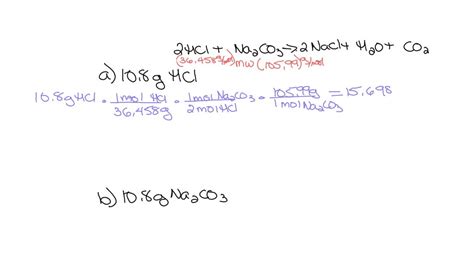 2HCl + Na₂CO₃ → 2NaCl + H₂O + CO₂
(36.458g/mol) MW (105.99) g/mol
a) 10.8g HCl
10.8g HCl · 1mol HCl / 36.458g · 1mol Na₂CO₃ / 2mol HCl · 105.99g / 1mol Na₂CO₃ = 15.698
b) 10.8g Na₂CO₃